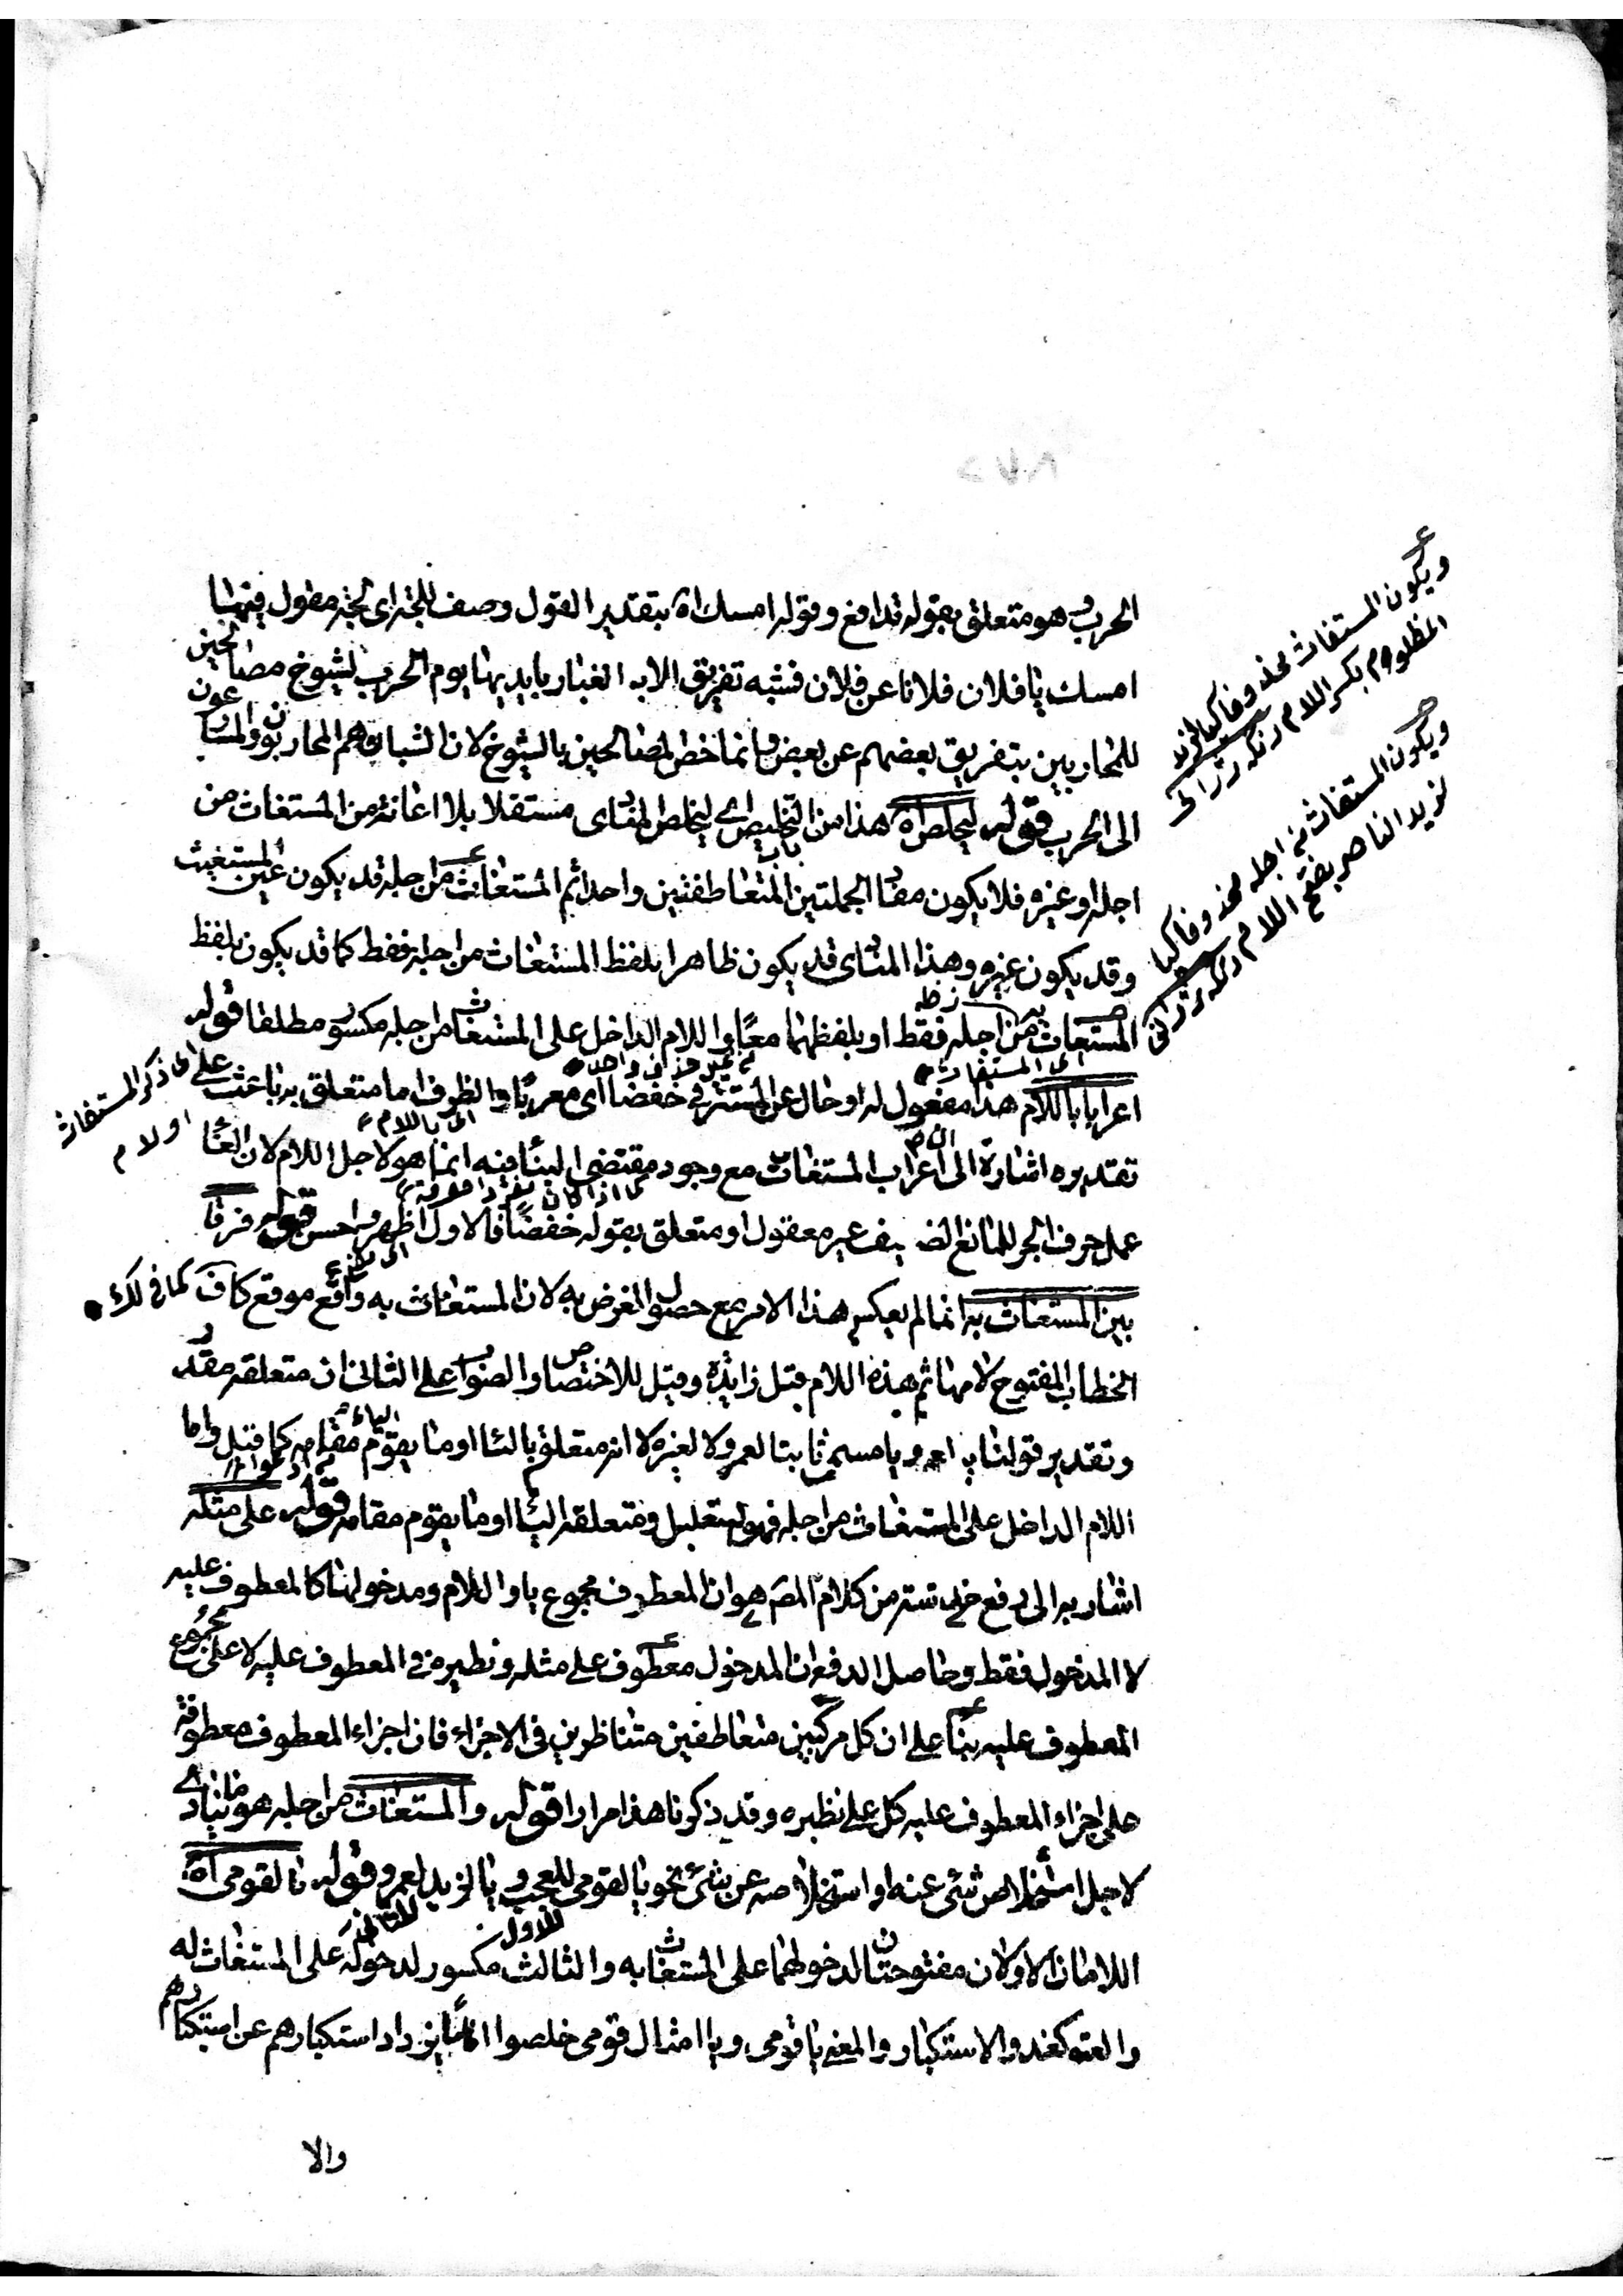 الحرب هو متعلق بقوله تدافع وقوله امسك اه بتقدير القول وصف للجة اى لجة مقول فيها
امسك يا فلان فلانا عن فلان فشبه تفريق الابل الغبار بايديها يوم الحرب لشيوخ مصالحين
للمحاربين بتفريق بعضهم عن بعض وانما خص المصالحين بالشيوخ لان الشباب هم المحاربون والمساعون
الى الحرب قوله ليخلص اه هذا من التخليص اى ليخلص المنادى مستقلا بلا اعانة من المستغاث من
اجله او غيره فلا يكون مفاد الجملتين المتعاطفتين واحدا ثم المستغاث من اجله قد يكون عين المستغيث
وقد يكون غيره وهذا المنادى قد يكون ظاهرا بلفظ المستغاث من اجله فقط كما قد يكون بلفظ
المستغاث من اجله فقط او بلفظهما معًا واللام الداخل على المستغاث من اجله مكسور مطلقا قوله
اعرابا باللام هذا مفعول له او حال عن المستتر فى خفضا اى معربًا والظرف اما متعلق به باعتبار
تقديره اشارة الى ان اعراب المستغاث مع وجود مقتضى البناء فيه انما هو لاجل اللام لان الغاء
عمل حرف الجر للمانع الضعيف غير معقول او متعلق بقوله خفضًا فالاول اظهر واحسن قوله فرقا
بين المستغاث به انما لم يعكس هذا الامر مع حصول الغرض به لان المستغاث به واقع موقع كاف
الخطاب المفتوح لامها ثم هذه اللام قيل زايدة وقيل للاختصاص والصواب على الثانى ان متعلقه مقدر
وتقدير قولنا يا لعمرو يا مسمى ثابتا لعمرو لا لغيره لا انه متعلق بالنداء او ما يقوم مقامه كما قيل واما
اللام الداخل على المستغاث من اجله فهو لتعليل ومتعلقه النداء او ما يقوم مقامه قوله على مثله
اشار به الى دفع خلل تستر من كلام المص هو ان المعطوف مجموع يا واللام ومدخولها كالمعطوف عليه
لا المدخول فقط وحاصل الدفع ان المدخول معطوف على مثله ونظيره فى المعطوف عليه لا على مجموع
المعطوف عليه بناء على ان كل مركبين متعاطفين متناظرين فى الاجزاء فان اجزاء المعطوف معطوفة
على اجزاء المعطوف عليه كل على نظيره وقد ذكرنا هذا مرارا قوله والمستغاث من اجله هو ما ينادى
لاجل استخلاص شئ عنه او استخلاصه عن شئ نحو يا لقومى للعجب ويا لزيد لعمرو قوله يا لقومى اه
اللامان الاولان مفتوحتان لدخولهما على المستغاث به والثالث مكسور لدخوله على المستغاث له
والعتو كغدو الاستكبار والمعنى يا قومى ويا امثال قومى خلصوا اناسًا يزداد استكبارهم عن استكبارهم
والا
ويكون المستغاث محذوفا كيا لزيد
المظلوم بكسر اللام
ويكون المستغاث من اجله محذوفا كيا
لزيد الناصر بفتح اللام
على ذكر المستغاث
او لام
كما فى لك
اى باللام
للاول
للثانى